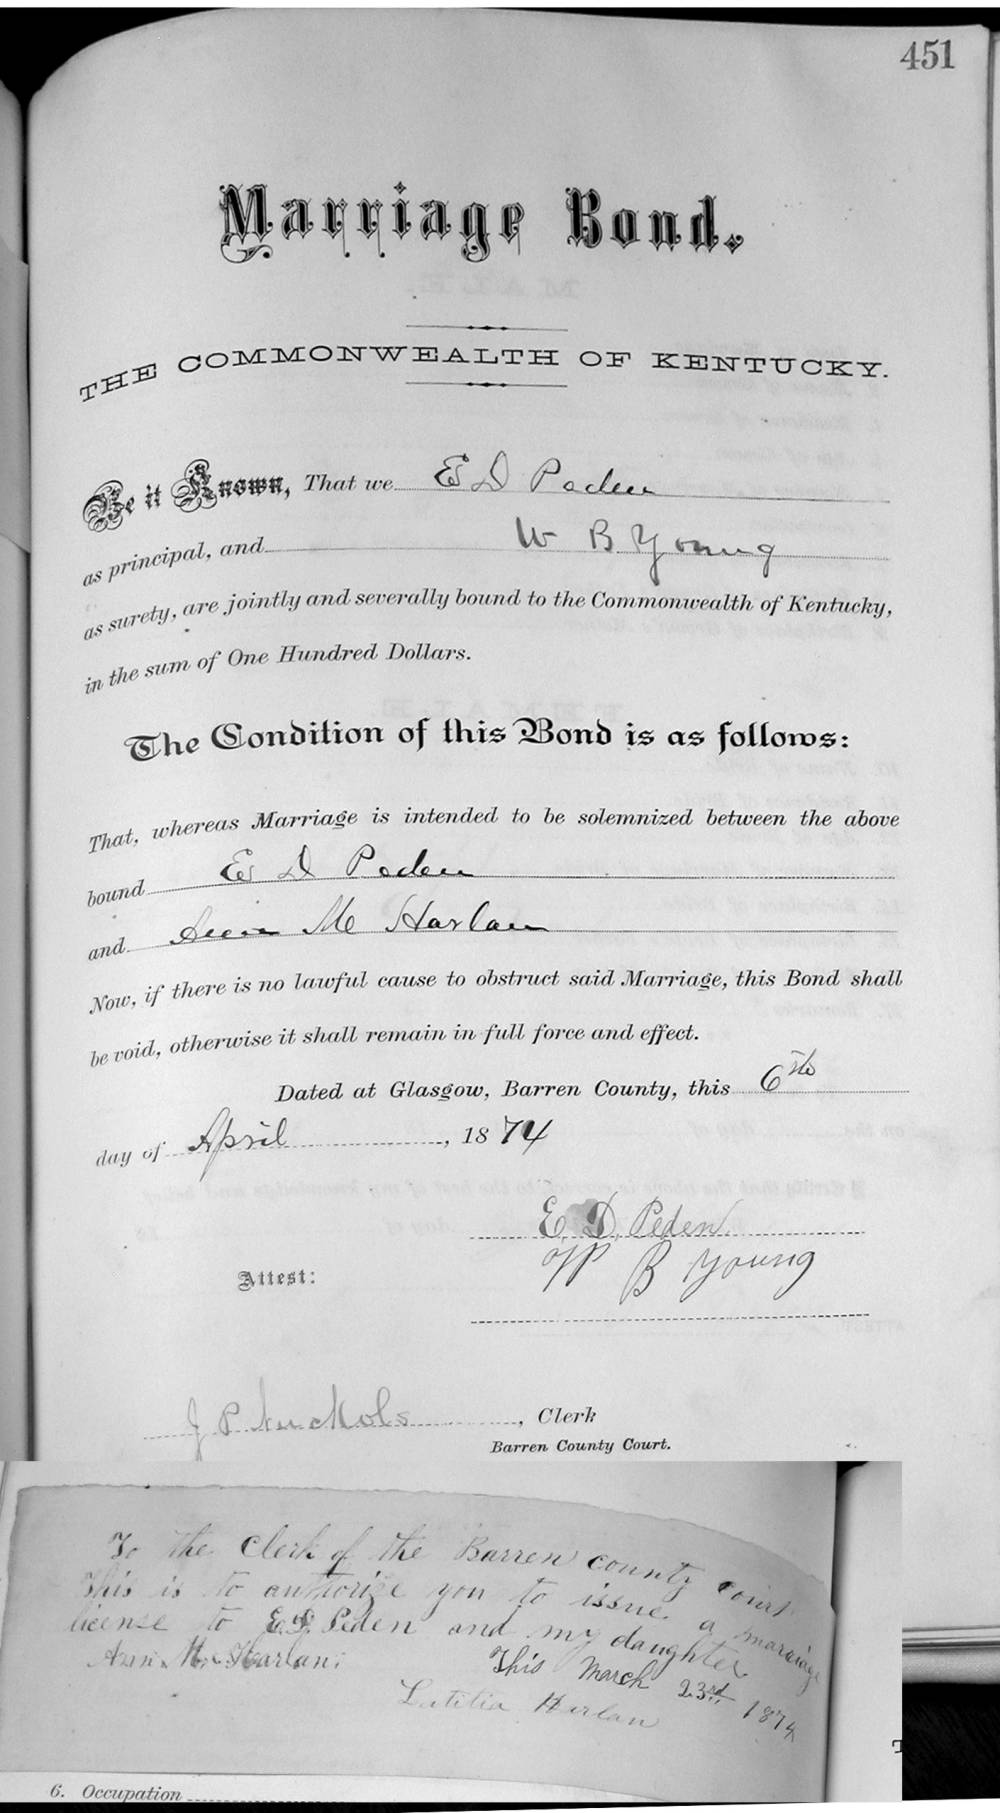 451
Marriage Bond.
THE COMMONWEALTH OF KENTUCKY.
Be it Known, That we E D Peden
as principal, and W B Young
as surety, are jointly and severally bound to the Commonwealth of Kentucky,
in the sum of One Hundred Dollars.
The Condition of this Bond is as follows:
That, whereas Marriage is intended to be solemnized between the above
bound E D Peden
and Ann M Harlan
Now, if there is no lawful cause to obstruct said Marriage, this Bond shall
be void, otherwise it shall remain in full force and effect.
Dated at Glasgow, Barren County, this 6th
day of April, 1874
E. D. Peden
W B Young
Attest:
J P Nuckols, Clerk
Barren County Court.
To the Clerk of the Barren county court
This is to authorize you to issue a marriage
license to E. D. Peden and my daughter
Ann M. Harlan. This March 23rd 1874
Letitia Harlan
6. Occupation